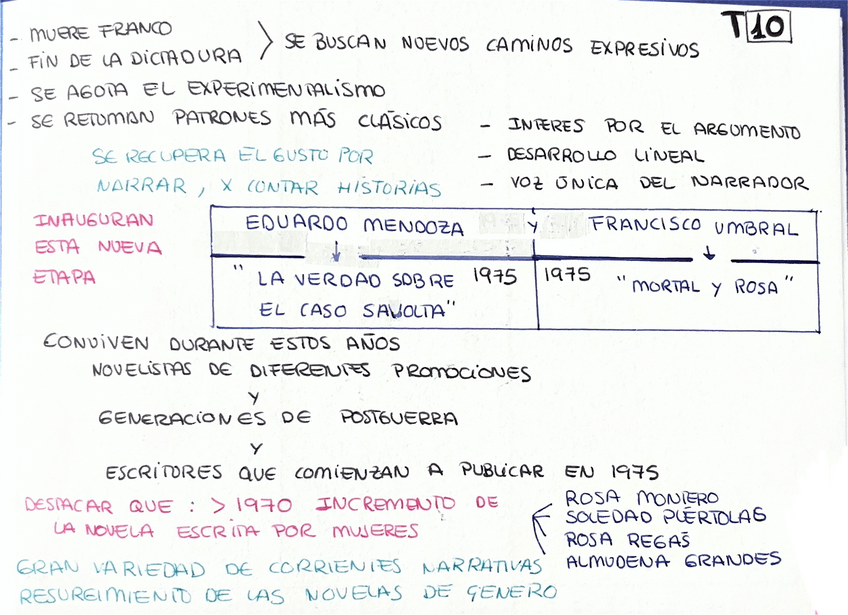 T10
- MUERE FRANCO
- FIN DE LA DICTADURA
SE BUSCAN NUEVOS CAMINOS EXPRESIVOS
- SE AGOTA EL EXPERIMENTALISMO
- SE RETOMAN PATRONES MÁS CLÁSICOS
- INTERES POR EL ARGUMENTO
- DESARROLLO LINEAL
- VOZ ÚNICA DEL NARRADOR
SE RECUPERA EL GUSTO POR
NARRAR, X CONTAR HISTORIAS
INAUGURAN
ESTA NUEVA
ETAPA
EDUARDO MENDOZA Y FRANCISCO UMBRAL
"LA VERDAD SOBRE 1975
EL CASO SAVOLTA"
1975 "MORTAL Y ROSA"
CONVIVEN DURANTE ESTOS AÑOS
NOVELISTAS DE DIFERENTES PROMOCIONES
Y
GENERACIONES DE POSTGUERRA
Y
ESCRITORES QUE COMIENZAN A PUBLICAR EN 1975
DESTACAR QUE : > 1970 INCREMENTO DE
LA NOVELA ESCRITA POR MUJERES
ROSA MONTERO
SOLEDAD PUÉRTOLAS
ROSA REGÀS
ALMUDENA GRANDES
GRAN VARIEDAD DE CORRIENTES NARRATIVAS
RESURGIMIENTO DE LAS NOVELAS DE GENERO